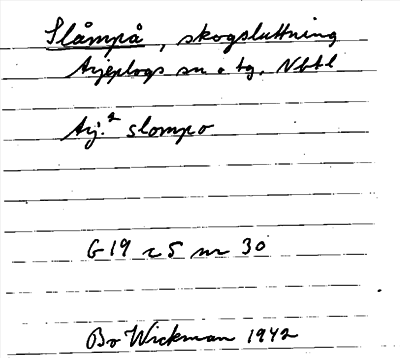 Slåmpå, skogsluttning
Arjeplogs sn o. tg. Nbtl
Arj.² slompo
G 19 c 5 nr 30
Bo Wickman 1942